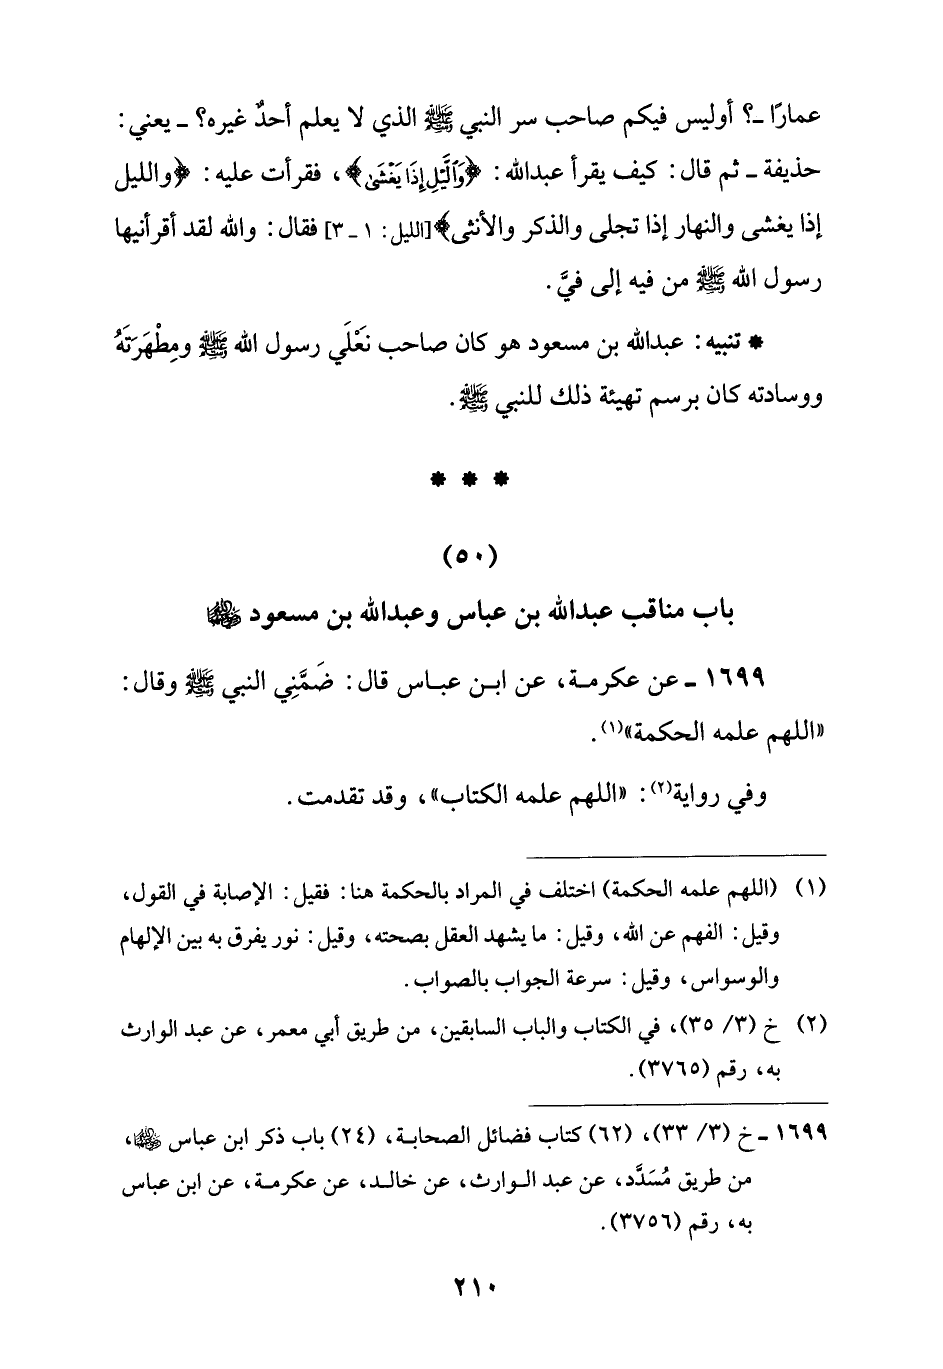 عمارًا ـ؟ أوليس فيكم صاحب سر النبي ﷺ الذي لا يعلم أحدٌ غيره؟ ـ يعني:
حذيفة ـ ثم قال: كيف يقرأ عبدالله: ﴿وَٱلَّيْلِ إِذَا يَغْشَىٰ﴾، فقرأت عليه: ﴿والليل
إذا يغشى والنهار إذا تجلى والذكر والأنثى﴾[الليل: ١ ـ ٣] فقال: والله لقد أقرأنيها
رسول الله ﷺ من فيه إلى فيَّ.
* تنبيه: عبدالله بن مسعود هو كان صاحب نَعْلَي رسول الله ﷺ ومِطْهَرَتَهُ
ووسادته كان برسم تهيئة ذلك للنبي ﷺ.
* * *
(٥٠)
باب مناقب عبدالله بن عباس وعبدالله بن مسعود ﷺ
١٦٩٩ ـ عن عكرمـة، عن ابـن عبـاس قال: ضَمَّنِي النبي ﷺ وقال:
«اللهم علمه الحكمة»(١).
وفي رواية(٢): «اللهم علمه الكتاب»، وقد تقدمت.
(١) (اللهم علمه الحكمة) اختلف في المراد بالحكمة هنا: فقيل: الإصابة في القول،
وقيل: الفهم عن الله، وقيل: ما يشهد العقل بصحته، وقيل: نور يفرق به بين الإلهام
والوسواس، وقيل: سرعة الجواب بالصواب.
(٢) خ (٣/ ٣٥)، في الكتاب والباب السابقين، من طريق أبي معمر، عن عبد الوارث
به، رقم (٣٧٦٥).
١٦٩٩ ـ خ (٣/ ٣٣)، (٦٢) كتاب فضائل الصحابـة، (٢٤) باب ذكر ابن عباس ﷺ،
من طريق مُسَدَّد، عن عبد الـوارث، عن خالـد، عن عكرمـة، عن ابن عباس
به، رقم (٣٧٥٦).
٢١٠